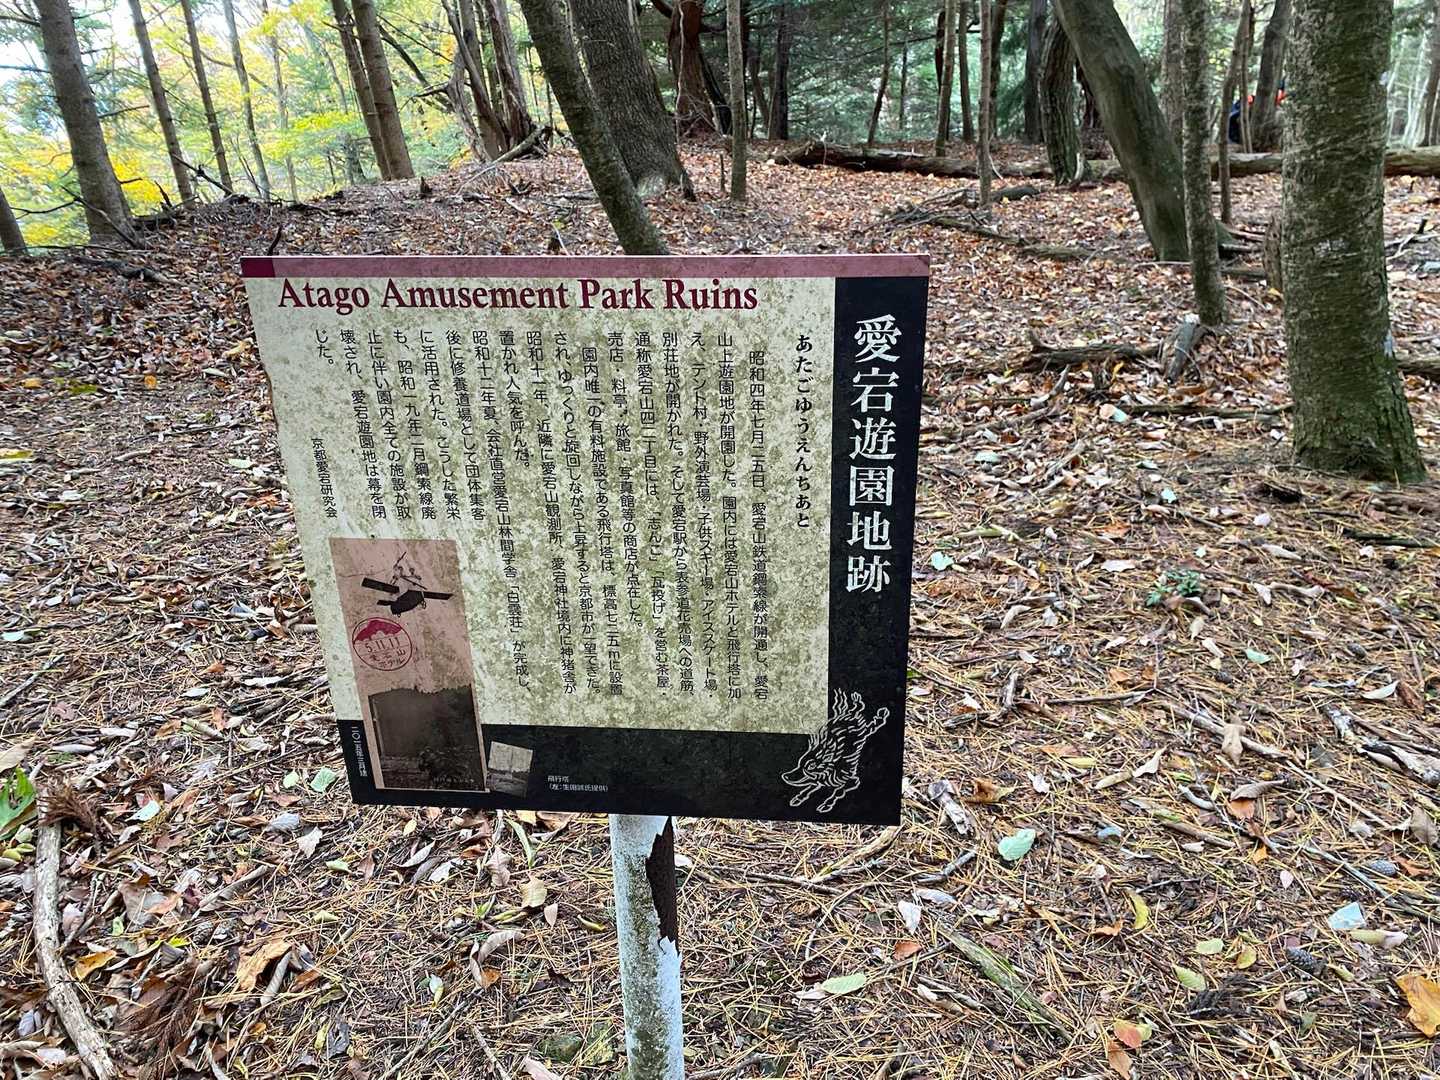 Atago Amusement Park Ruins
愛宕遊園地跡
あたごゆうえんちあと
昭和四年七月二五日、愛宕山鉄道鋼索線が開通し、愛宕
山上遊園地が開園した。園内には愛宕山ホテルと飛行塔に加
え、テント村・野外演芸場・子供スキー場・アイススケート場・
別荘地が開かれた。そして愛宕駅から表参道花売場への道筋、
通称愛宕山四二丁目には、「志んこ」「瓦投げ」を営む茶屋、
売店・料亭・旅館・写真館等の商店が点在した。
園内唯一の有料施設である飛行塔は、標高七二五mに設置
され、ゆっくりと旋回しながら上昇すると京都市が一望できた。
昭和十一年、近隣に愛宕山観測所、愛宕神社境内に神猪舎が
置かれ人気を呼んだ。
昭和十二年夏、会社直営愛宕山林間学舎「白雲荘」が完成し、
後に修養道場として団体集客
に活用された。こうした繁栄
も、昭和一九年二月鋼索線廃
止に伴い園内全ての施設が取
壊され、愛宕遊園地は幕を閉
じた。
京都愛宕研究会
5.11.1
ホテル
二〇一五年三月建
飛行塔